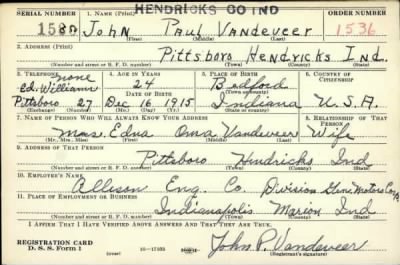 HENDRICKS CO IND
SERIAL NUMBER 1. NAME (Print) ORDER NUMBER
158 John Paul Vandeveer 1536
(First) (Middle) (Last)
2. ADDRESS (Print)
Pittsboro Hendricks Ind.
(Number and street or R. F. D. number) (Town) (County) (State)
3. TELEPHONE 4. AGE IN YEARS 5. PLACE OF BIRTH 6. COUNTRY OF CITIZENSHIP
none 24 Bedford
Ed. Williams DATE OF BIRTH (Town or county)
Pittsboro 27 Dec 16 1915 Indiana U.S.A.
(Exchange) (Number) (Mo.) (Day) (Yr.) (State or country)
7. NAME OF PERSON WHO WILL ALWAYS KNOW YOUR ADDRESS 8. RELATIONSHIP OF THAT PERSON
Mrs. Edna Oma Vandeveer Wife
(Mr., Mrs., Miss) (First) (Middle) (Last)
9. ADDRESS OF THAT PERSON
Pittsboro Hendricks Ind
(Number and street or R. F. D. number) (Town) (County) (State)
10. EMPLOYER'S NAME
Allison Eng. Co. Division Gen. Motors Corp
11. PLACE OF EMPLOYMENT OR BUSINESS
Indianapolis Marion Ind
(Number and street or R. F. D. number) (Town) (County) (State)
I AFFIRM THAT I HAVE VERIFIED ABOVE ANSWERS AND THAT THEY ARE TRUE.
REGISTRATION CARD
D. S. S. Form 1
John P. Vandeveer
(Registrant's signature)